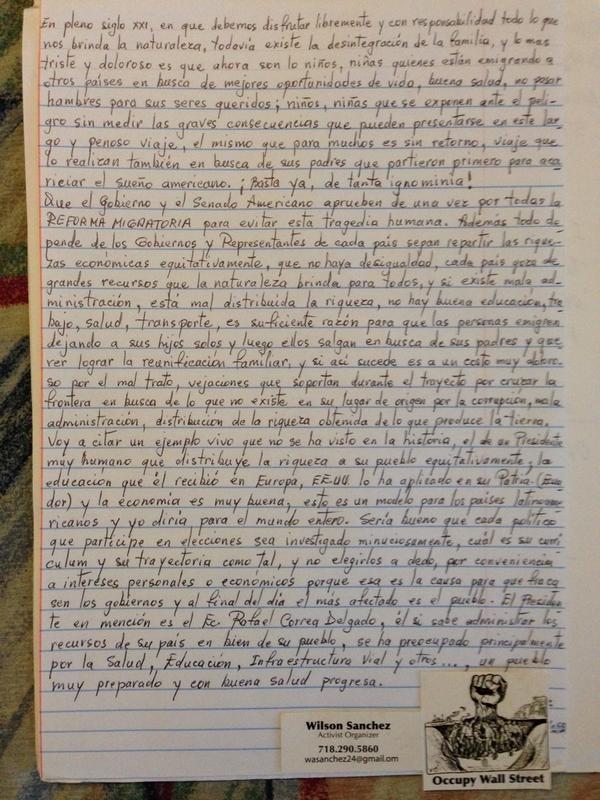 En pleno siglo XXI, en que debemos disfrutar libremente y con responsabilidad todo lo que
nos brinda la naturaleza, todavía existe la desintegración de la familia, y lo mas
triste y doloroso es que ahora son lo niños, niñas quienes están emigrando a
otros países en busca de mejores oportunidades de vida, buena salud, no pasar
hambres para sus seres queridos; niños, niñas que se exponen ante el peli-
gro sin medir las graves consecuencias que pueden presentarse en este lar-
go y penoso viaje, el mismo que para muchos es sin retorno, viaje que
lo realizan también en busca de sus padres que partieron primero para aca
riciar el sueño americano. ¡Basta ya, de tanta ignominia!
Que el Gobierno y el Senado Americano aprueben de una vez por todas la
REFORMA MIGRATORIA para evitar esta tragedia humana. Además todo de
pende de los Gobiernos y Representantes de cada país sepan repartir las rique-
zas económicas equitativamente, que no haya desigualdad, cada país goza de
grandes recursos que la naturaleza brinda para todos, y si existe mala ad-
ministración, está mal distribuida la riqueza, no hay buena educación, tra
bajo, salud, transporte, es suficiente razón para que las personas emigren
dejando a sus hijos solos y luego ellos salgan en busca de sus padres y que
rer lograr la reunificación familiar, y si así sucede es a un costo muy doloro-
so por el mal trato, vejaciones que soportan durante el trayecto por cruzar la
frontera en busca de lo que no existe en su lugar de origen por la corrupción, mala
administración, distribución de la riqueza obtenida de lo que produce la tierra.
Voy a citar un ejemplo vivo que no se ha visto en la historia, el de un Presidente
muy humano que distribuye la riqueza a su pueblo equitativamente, la
educación que él recibió en Europa, EE.UU. lo ha aplicado en su Patria (Ecua
dor) y la economía es muy buena, esto es un modelo para los países latinoame
ricanos y yo diría para el mundo entero. Sería bueno que cada político
que participe en elecciones sea investigado minuciosamente, cuál es su curri
culum y su trayectoria como tal, y no elegirlos a dedo, por conveniencia
a intereses personales o económicos porque esa es la causa para que fraca
sen los gobiernos y al final del día el más afectado es el pueblo. El Presiden
te en mención es el Ec. Rafael Correa Delgado, él si sabe administrar los
recursos de su país en bien de su pueblo, se ha preocupado principalmente
por la Salud, Educación, Infraestructura Vial y otros..., un pueblo
muy preparado y con buena salud progresa.
Wilson Sanchez
Activist Organizer
718.290.5860
wasanchez24@gmail.om
Occupy Wall Street